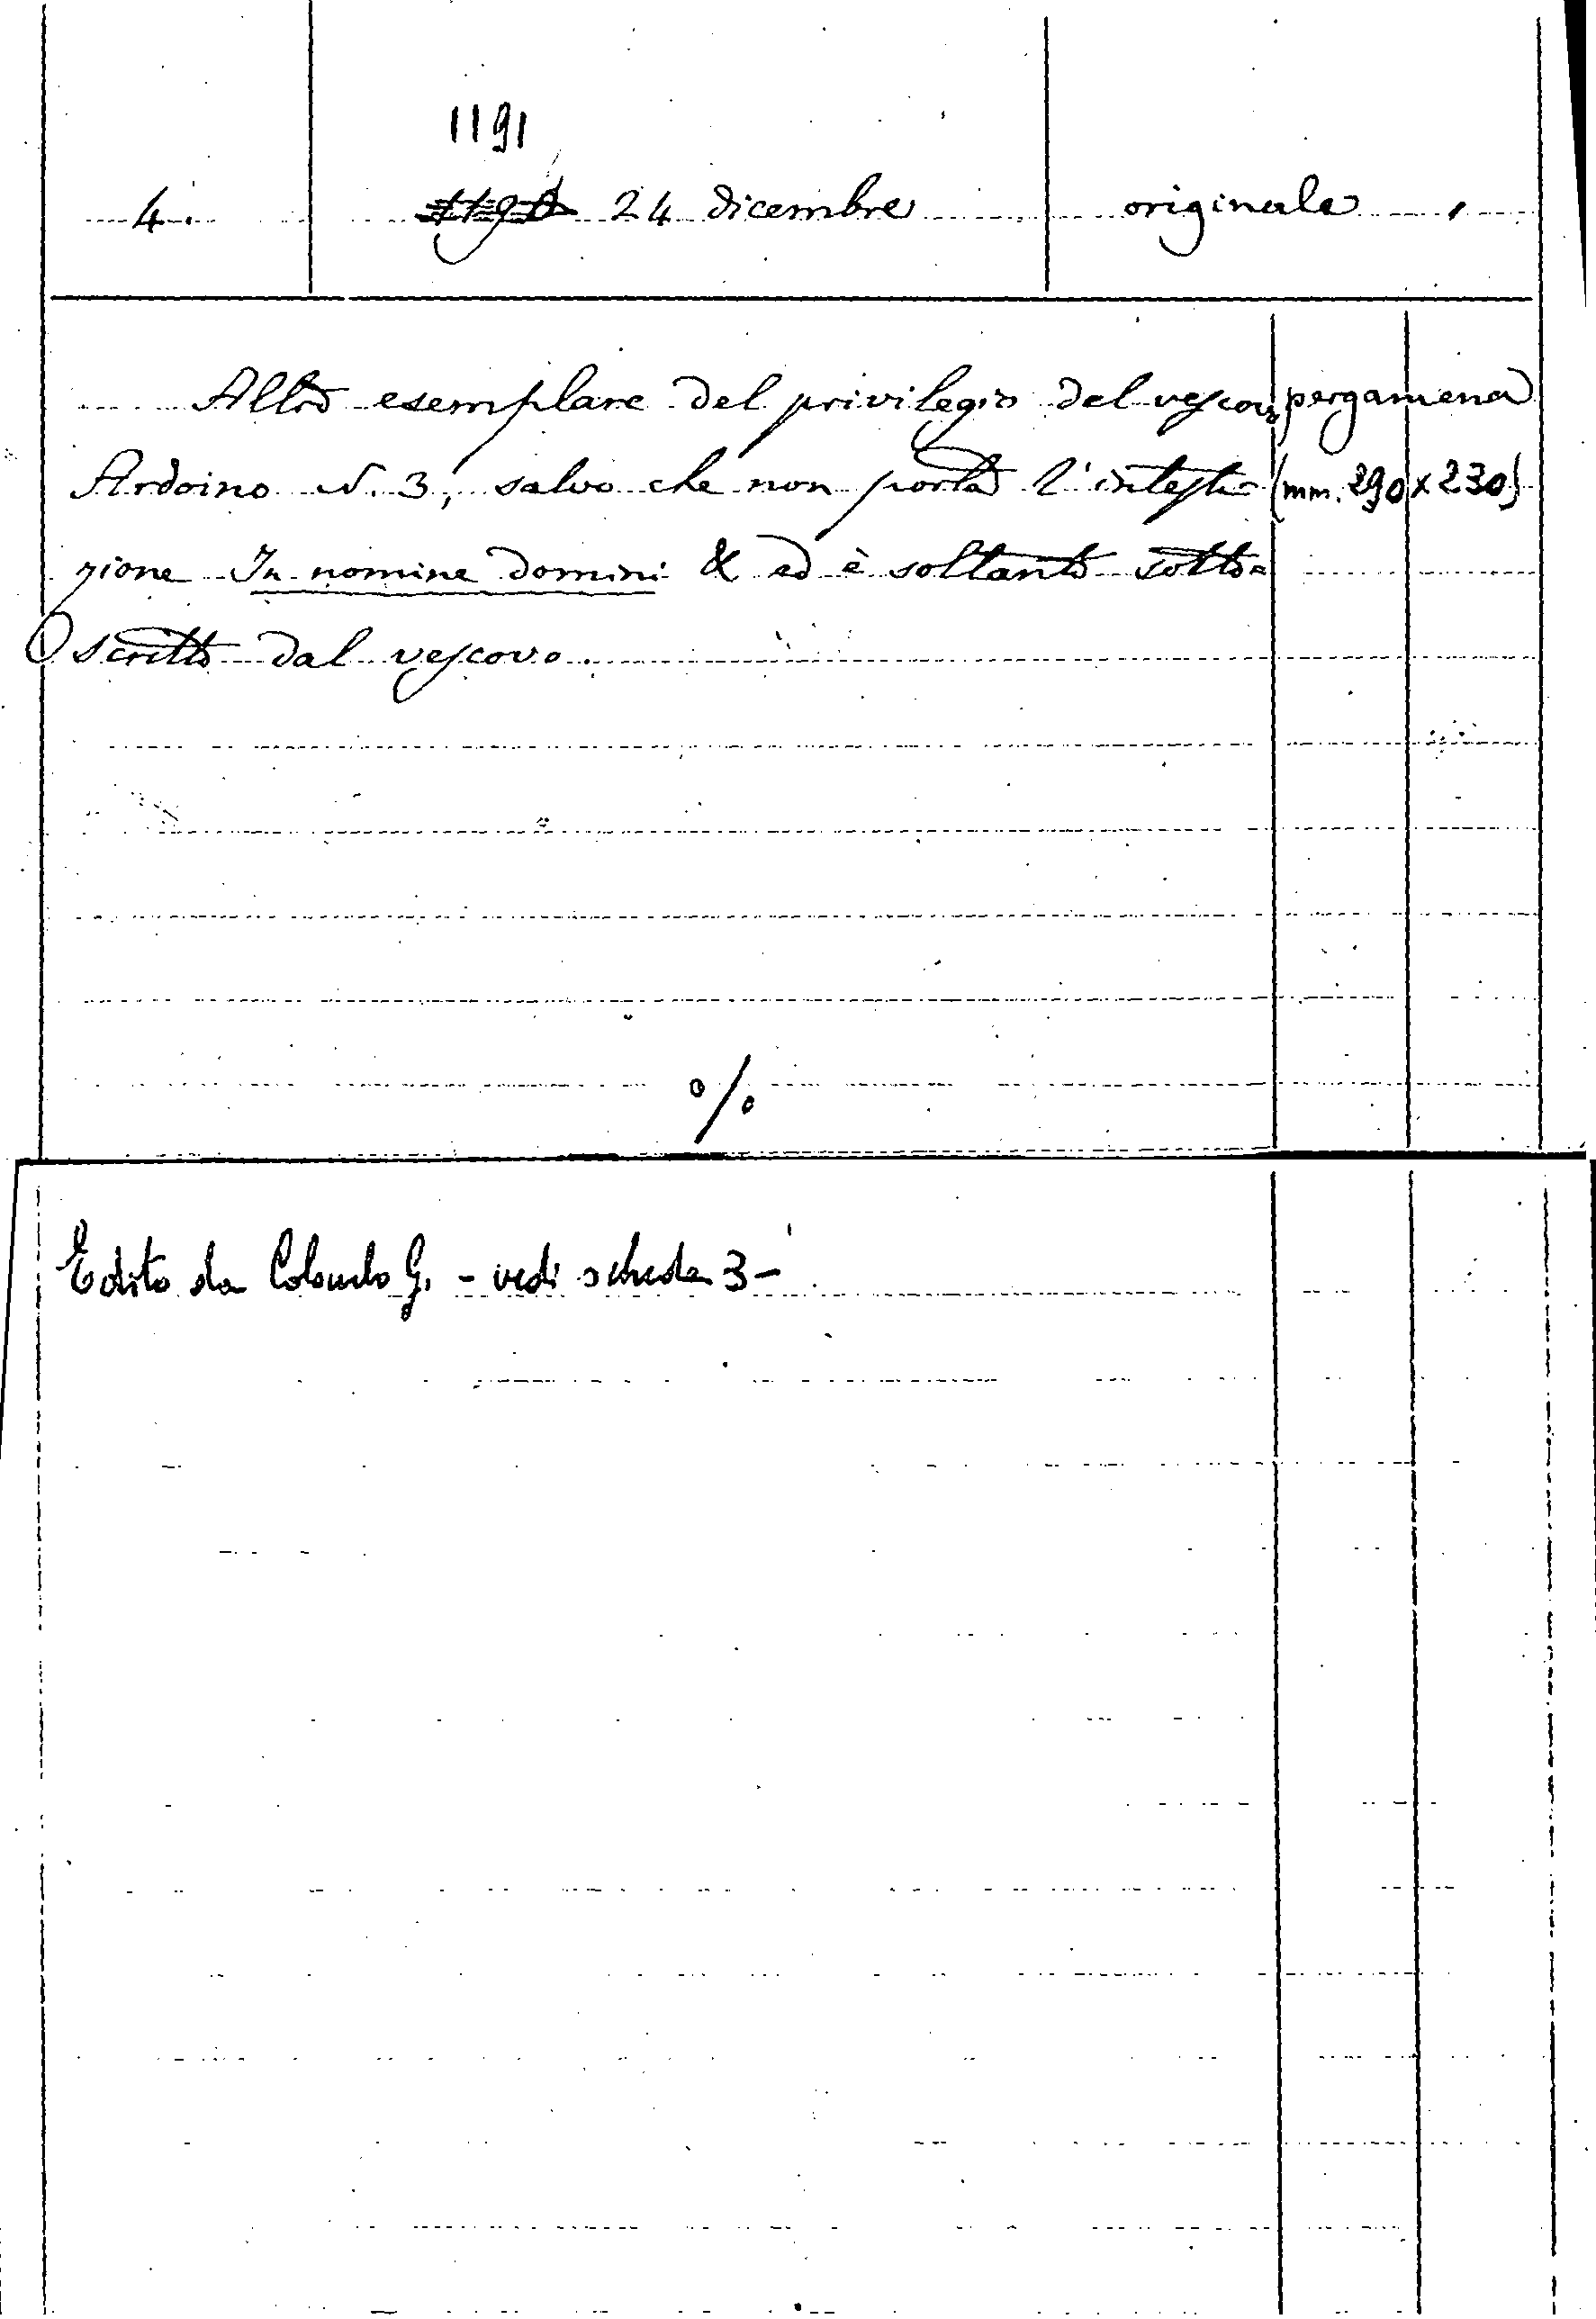 1191
4. 1190 24 dicembre originale
Altro esemplare del privilegio del vescovo pergamena
Ardoino N. 3, salvo che non porta l'intesta- (mm. 290 x 230)
zione In nomine domini & ed è soltanto sotto=
scritto dal vescovo.
%
Edito da Colombo G. - vedi scheda 3 -